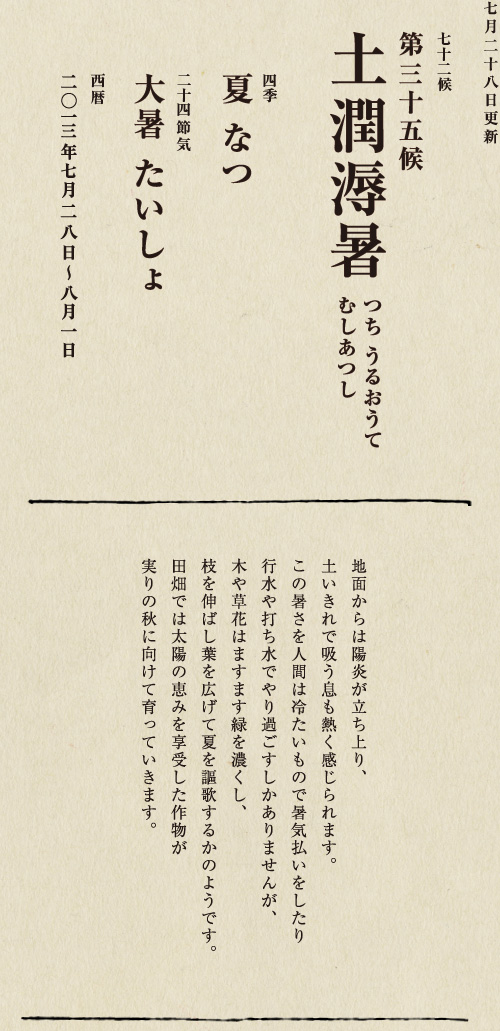 七月二十八日更新
七十二候
第三十五候
土潤溽暑
つち うるおうて
むしあつし
四季
夏 なつ
二十四節気
大暑 たいしょ
西暦
二〇一三年七月二八日〜八月一日
地面からは陽炎が立ち上り、
土いきれで吸う息も熱く感じられます。
この暑さを人間は冷たいもので暑気払いをしたり
行水や打ち水でやり過ごすしかありませんが、
木や草花はますます緑を濃くし、
枝を伸ばし葉を広げて夏を謳歌するかのようです。
田畑では太陽の恵みを享受した作物が
実りの秋に向けて育っていきます。